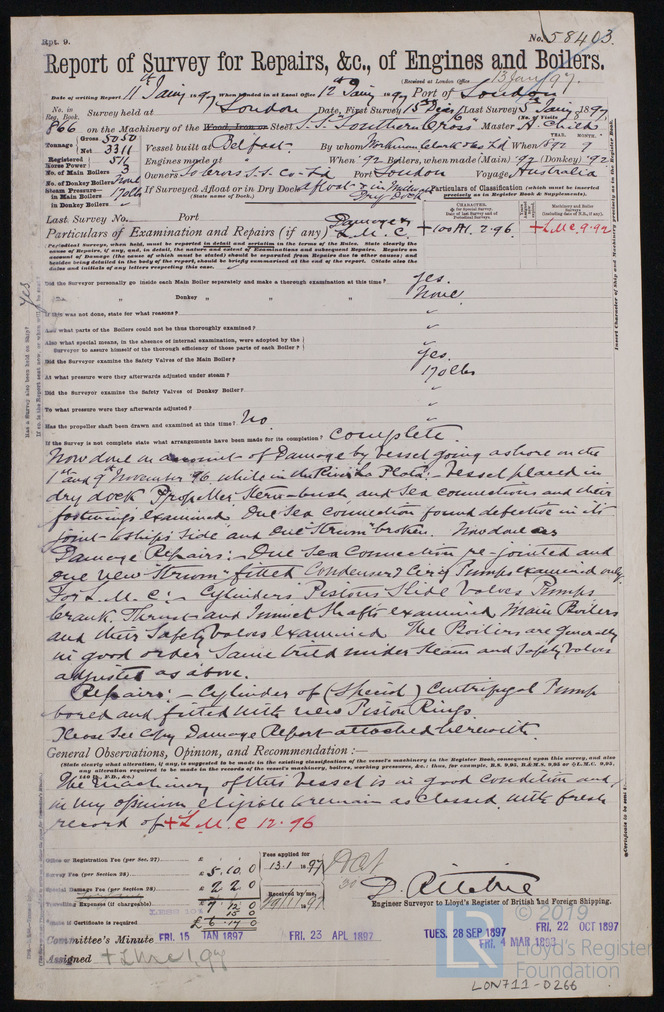 Rpt. 9.
No. 58403.
Report of Survey for Repairs, &c., of Engines and Boilers.
(Received at London Office 13 Jany 97.
Date of writing Report 11th Jany 1897 When handed in at Local Office 12th Jany 1897 Port of London
No. in Reg. Book. Survey held at London Date, First Survey 15th Decr Last Survey 5th Jany 1897
(No. of Visits 8
866 on the Machinery of the Wood, Iron or Steel S.S. "Southern Cross" Master A. Child
Tonnage Gross 5050 Net 3311 Vessel built at Belfast By whom Workman Clark & Co Ld When 1892 9
YEAR. MONTH.
Registered Horse Power 511 Engines made at " When '92 Boilers, when made (Main) '92 (Donkey) '92
No. of Main Boilers 3 Owners S.S. Co Ld Port London Voyage Australia
No. of Donkey Boilers None If Surveyed Afloat or in Dry Dock Afloat & in Dry Dock
(State name of Dock.)
Steam Pressure in Main Boilers 170 lbs
in Donkey Boilers
Particulars of Classification (which must be inserted precisely as in Register Book & Supplements).
Last Survey No. Port
Particulars of Examination and Repairs (if any) Damage & L.M.C.
CHARACTER.
Machinery and Boiler Surveys
+100A1. 2.96
+L.M.C. 9.92
(Periodical Surveys, when held, must be reported in detail and seriatim in the terms of the Rules. State clearly the
cause of Repairs, if any, and, in detail, the nature and extent of Examinations and subsequent Repairs. Repairs on
account of Damage (the cause of which must be stated) should be separated from Repairs due to other causes; and
besides being detailed in the body of the report, should be briefly summarised at the end of the report. State also the
dates and initials of any letters respecting this case.
Did the Surveyor personally go inside each Main Boiler separately and make a thorough examination at this time? Yes.
Do. " Donkey " " " " None
If this was not done, state for what reasons?
And what parts of the Boilers could not be thus thoroughly examined?
Also what special means, in the absence of internal examination, were adopted by the
Surveyor to assure himself of the thorough efficiency of those parts of each Boiler?
Did the Surveyor examine the Safety Valves of the Main Boiler? Yes.
At what pressure were they afterwards adjusted under steam? 170 lbs
Did the Surveyor examine the Safety Valves of Donkey Boiler?
To what pressure were they afterwards adjusted?
Has the propeller shaft been drawn and examined at this time? No
If the Survey is not complete state what arrangements have been made for its completion? Complete.
Now done on account of Damage by vessel going ashore on the
1st and 9th November 96, while in the River La Plata:- Vessel placed in
dry dock Propeller Stern-bush and sea connections and their
fastenings examined, One Sea Connection found defective in its
joint-to ships side and one "Strum" broken. Now done as
Damage Repairs:- One Sea Connection re-jointed and
One new "Strum" fitted Condenser & Circg Pumps examined only.
For L.M.C.:- Cylinders Pistons Slide Valves Pumps
Crank, Thrust and Tunnel Shafts examined Main Boilers
and their Safety Valves examined The Boilers are generally
in good order Same tried under Steam and Safety Valves
adjusted as above.
Repairs:- Cylinder of Centrifugal Pump
bored and fitted with new Piston Rings.
Please See Copy Damage Report attached herewith.
General Observations, Opinion, and Recommendation:—
(State clearly what alteration, if any, is suggested to be made in the existing classification of the vessel's machinery in the Register Book, consequent upon this survey, and also
any alteration required to be made in the records of the vessel's machinery, boilers, working pressures, &c.: thus, for example, B.S. 9,95, B.&M.S. 9,95 or L.M.C. 9,95,
The machinery of this vessel is in good condition and
in my opinion, eligible to remain as classed, with fresh
record of +L.M.C 12.96
Office or Registration Fee (per Sec. 27) £
Survey Fee (per Section 28) £ 5.10.0
Special Damage Fee (per Section 28) £ 2 2 0
Travelling Expenses (if chargeable) £
7 12 0
Fees applied for
13.1 1897
Received by me,
D. Ritchie
Engineer Surveyor to Lloyd's Register of British and Foreign Shipping.
Committee's Minute FRI. 15 JAN 1897 FRI. 23 APL 1897 TUES. 28 SEP 1897 FRI. 22 OCT 1897
FRI. 4 MAR 1898
Assigned + LMC 1,97
© 2019
Lloyd's Register
Foundation
LR
LON711-0266